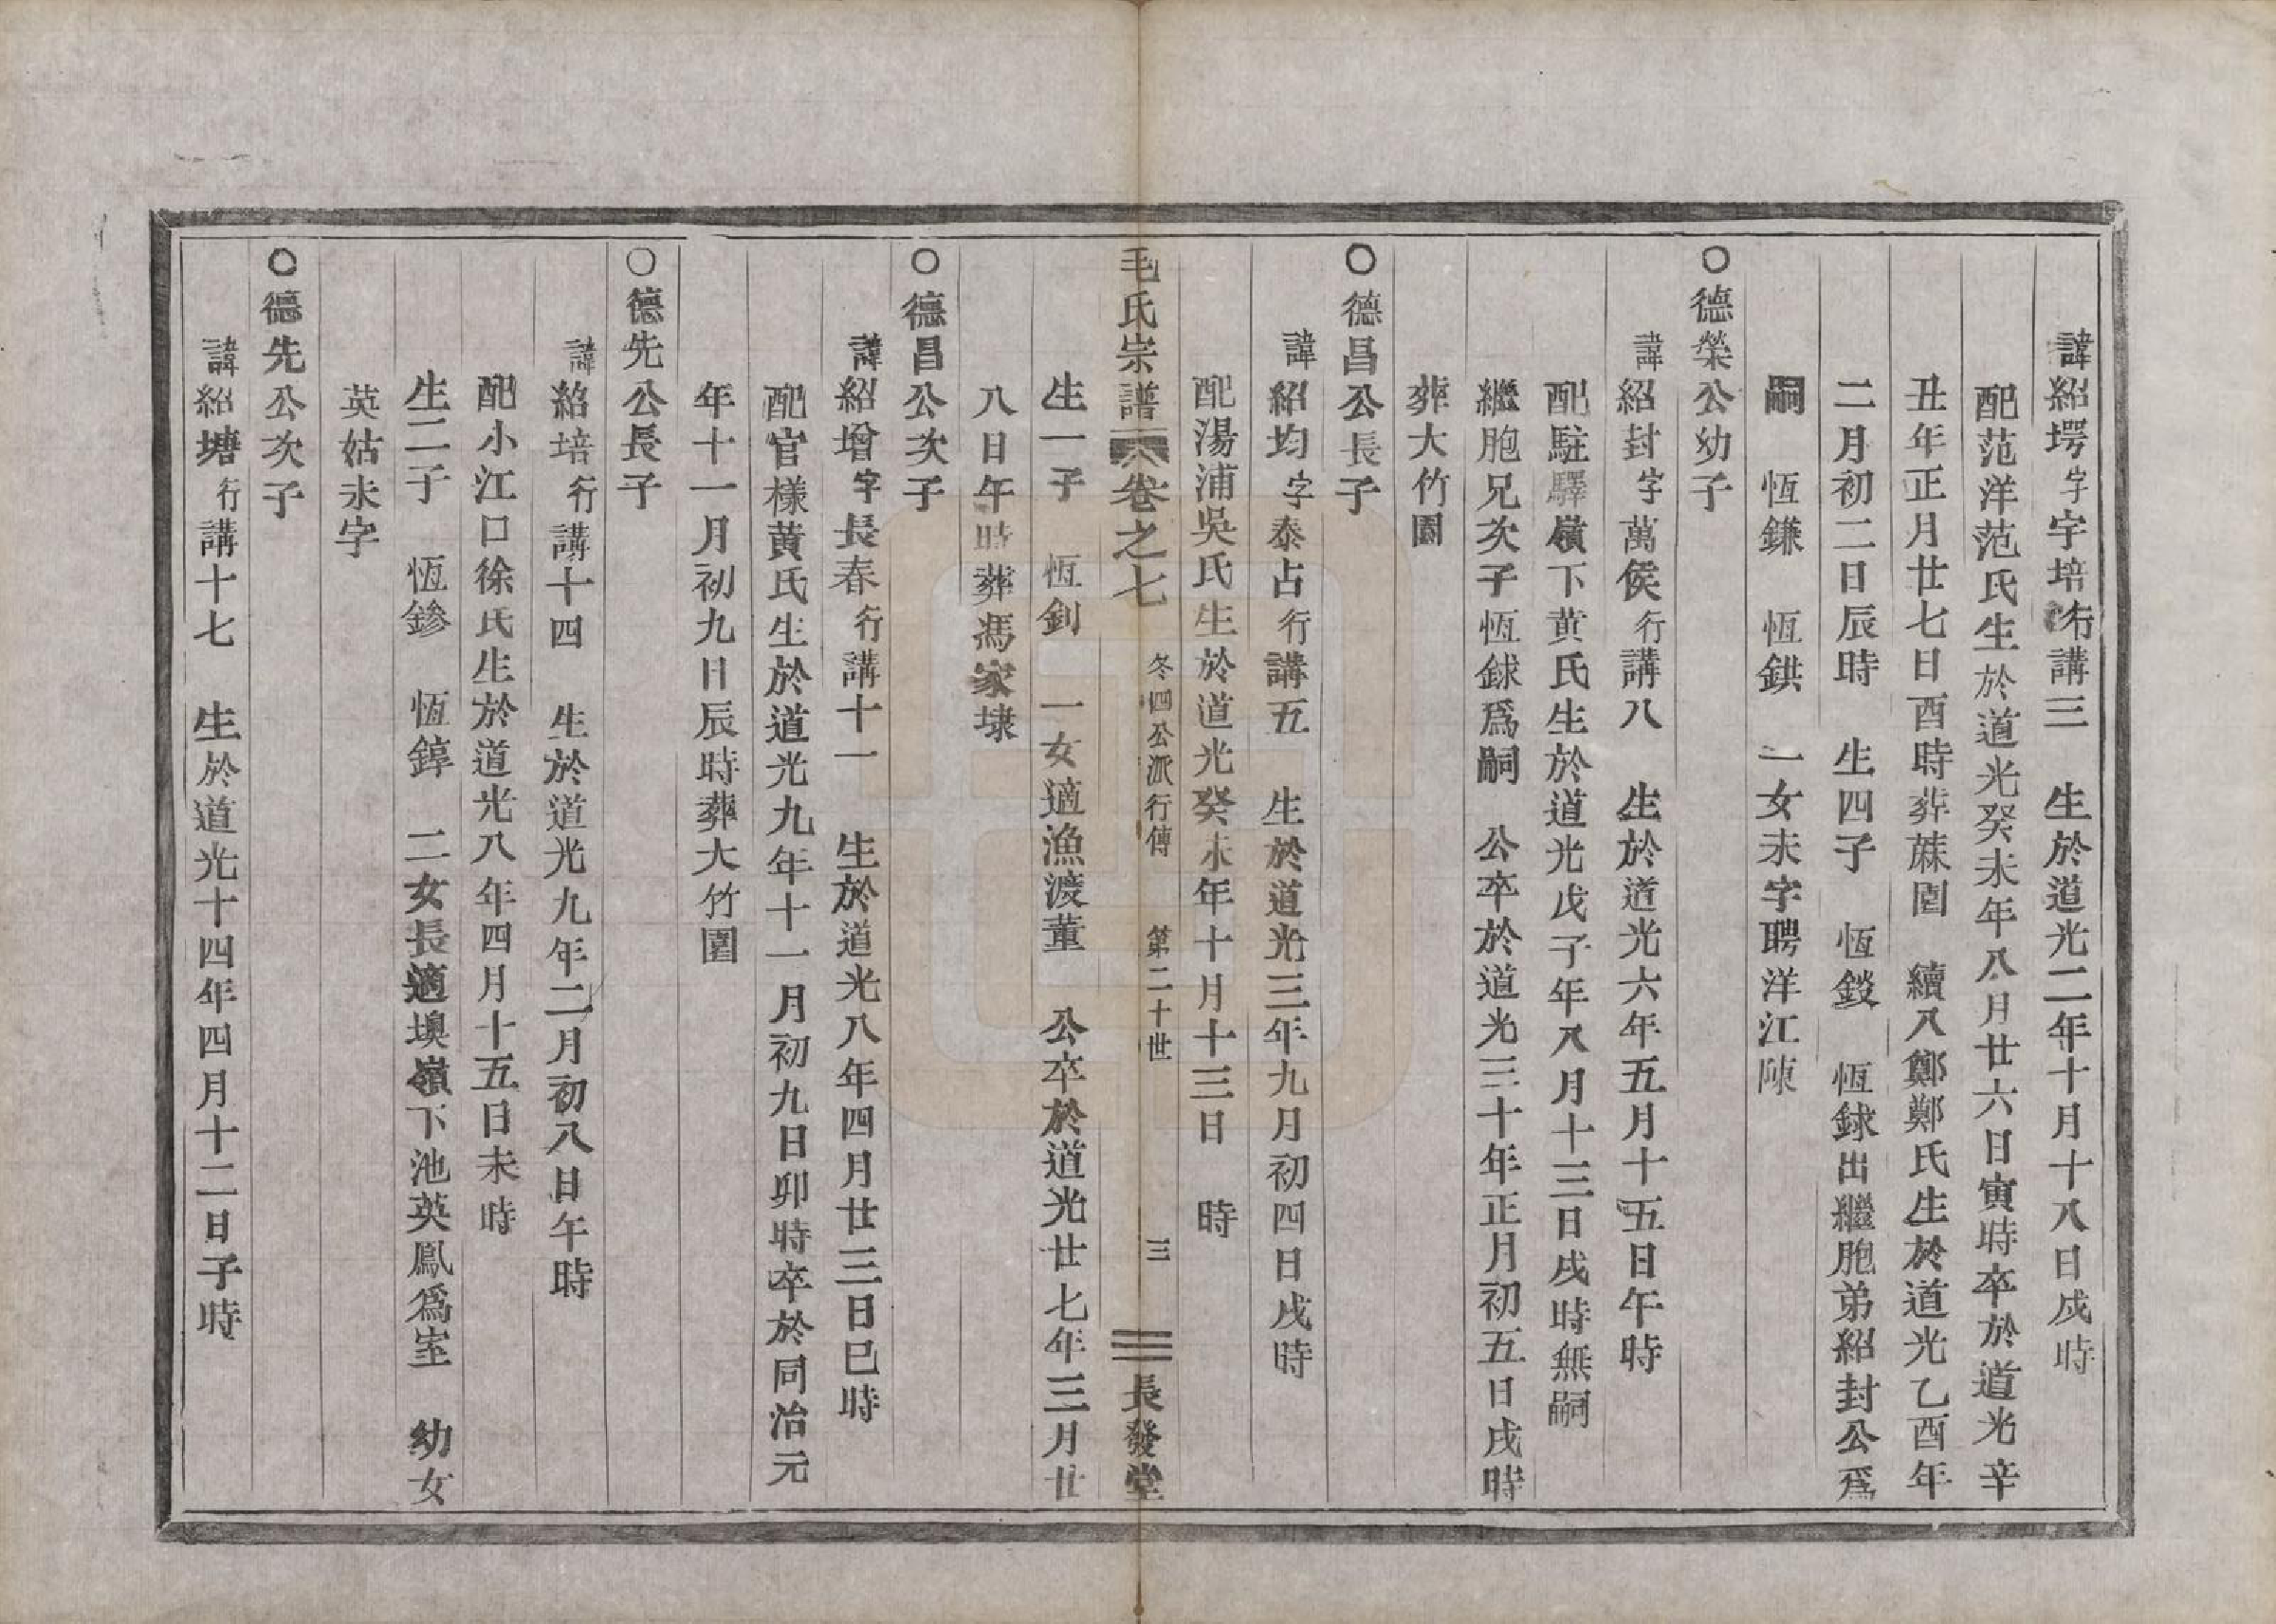 諱紹堮字宇培行講三　生於道光二年十月十八日戍時
配范洋范氏生於道光癸未年八月廿六日寅時卒於道光辛
丑年正月廿七日酉時葬蔴園　續八鄭鄭氏生於道光乙酉年
二月初二日辰時　生四子　恆錟　恆銶出繼胞弟紹封公爲
嗣　恆鎌　恆鉷　一女未字聘洋江陳
○德榮公幼子
諱紹封字萬侯行講八　生於道光六年五月十五日午時
配駐驛嶺下黄氏生於道光戊子年八月十三日戌時無嗣
繼胞兄次子恆銶爲嗣　公卒於道光三十年正月初五日戌時
葬大竹園
○德昌公長子
諱紹均字泰占行講五　生於道光三年九月初四日戌時
配湯浦吳氏生於道光癸未年十月十三日　時
毛氏宗譜　卷之七　冬四公派行傳　第二十世　三　長發堂
生一子　恆釗　一女適漁渡董　公卒於道光廿七年三月廿
八日午時葬馮家埭
○德昌公次子
諱紹增字長春行講十一　生於道光八年四月廿三日巳時
配官樣黄氏生於道光九年十一月初九日卯時卒於同治元
年十一月初九日辰時葬大竹園
○德先公長子
諱紹培行講十四　生於道光九年二月初八日午時
配小江口徐氏生於道光八年四月十五日未時
生二子　恆鏒　恆錞　二女長適墺嶺下池英鳳爲室　幼女
英姑未字
○德先公次子
諱紹塘行講十七　生於道光十四年四月十二日子時